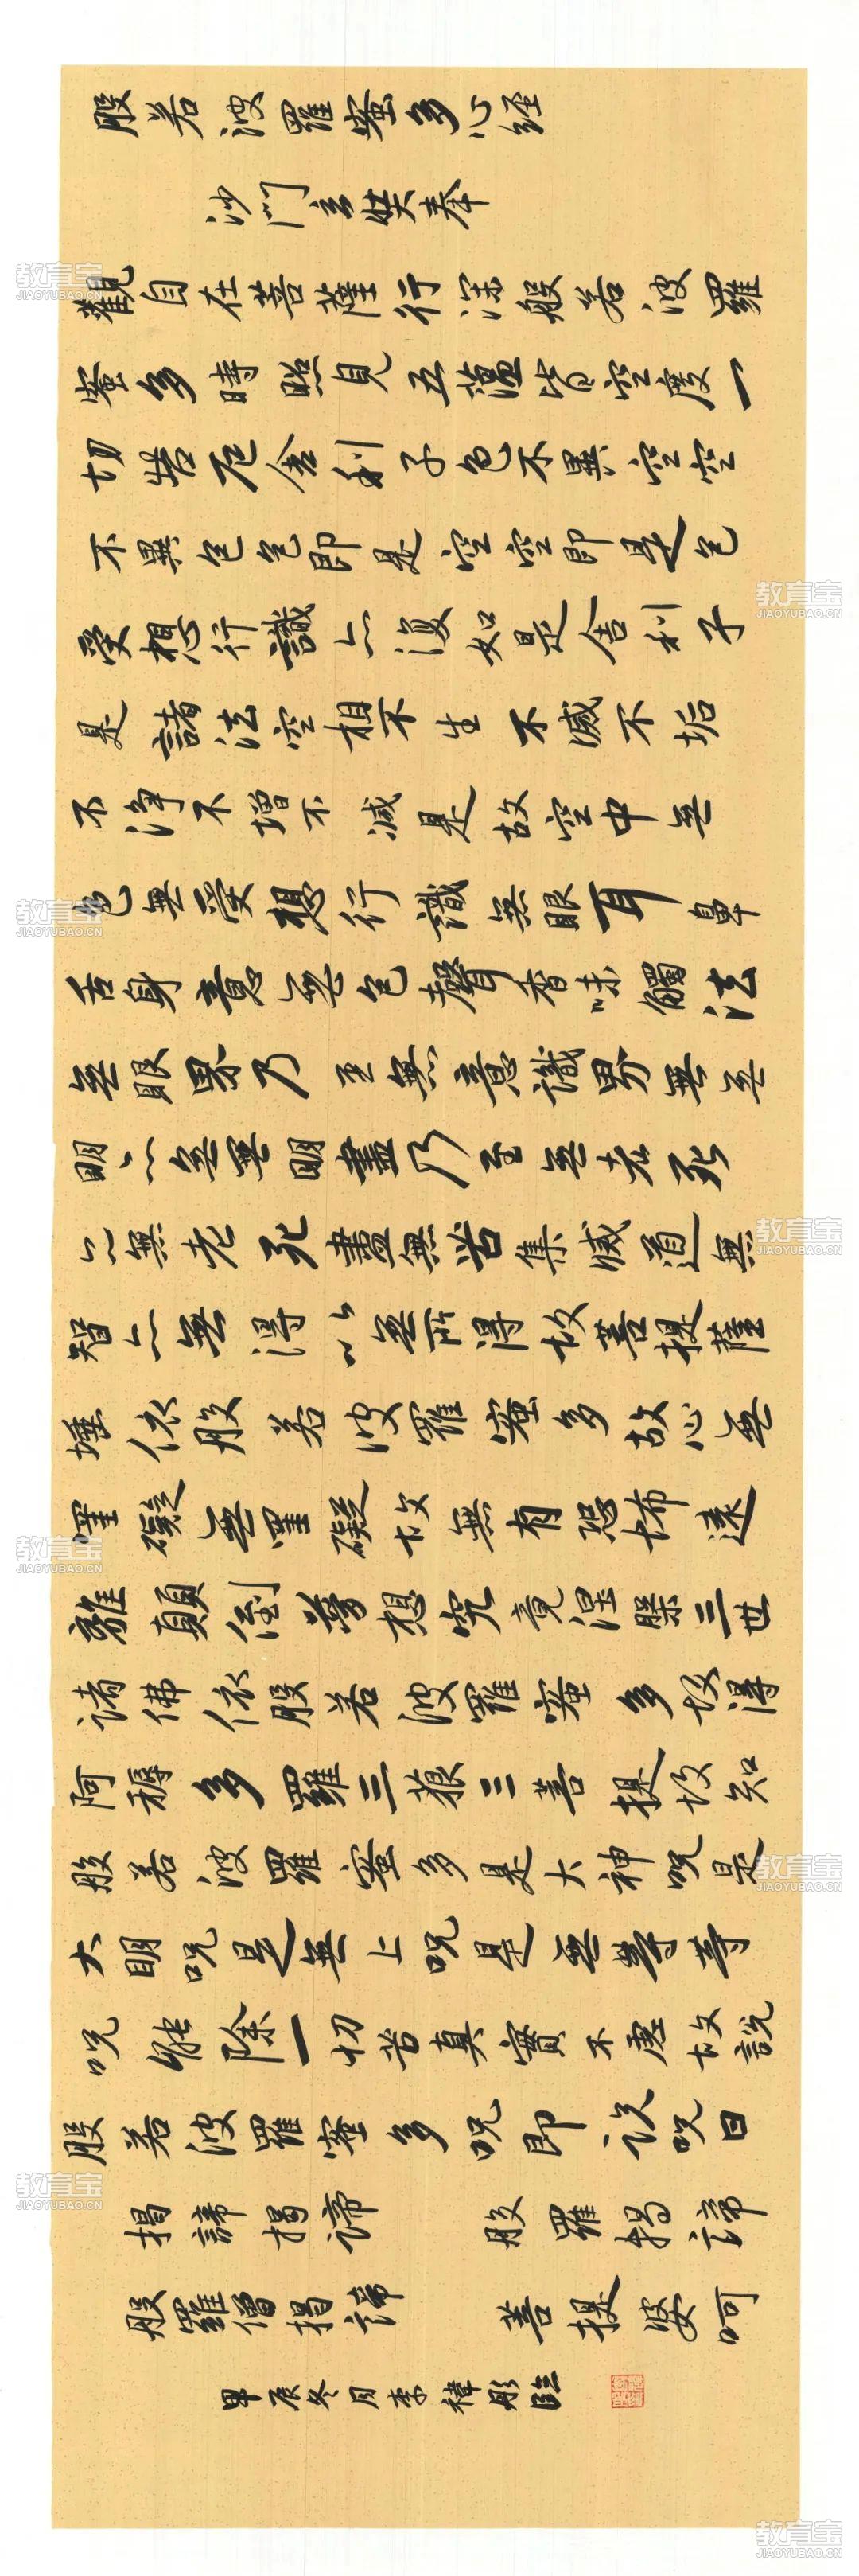 般若波羅蜜多心經
沙門玄奘奉
觀自在菩薩行深般若波羅
蜜多時照見五蘊皆空度一
切苦厄舍利子色不異空空
不異色色即是空空即是色
受想行識亦復如是舍利子
是諸法空相不生不滅不垢
不淨不增不減是故空中無
色無受想行識無眼耳鼻
舌身意無色聲香味觸法
無眼界乃至無意識界無無
明亦無無明盡乃至無老死
亦無老死盡無苦集滅道無
智亦無得以無所得故菩提薩
埵依般若波羅蜜多故心無
罣礙無罣礙故無有恐怖遠
離顛倒夢想究竟涅槃三世
諸佛依般若波羅蜜多故得
阿耨多羅三藐三菩提故知
般若波羅蜜多是大神咒是
大明咒是無上咒是無等等
咒能除一切苦真實不虛故說
般若波羅蜜多咒即説咒曰
揭諦揭諦 般羅揭諦
般羅僧揭諦 菩提婆呵
甲辰冬月李禕彤臨
教育宝
JIAOYUBAO.CN